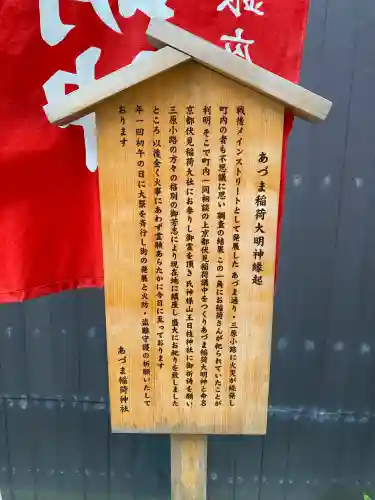 あづま稲荷大明神縁起
戦後メインストリートとして発展した あづま通り・三原小路に火災が続発し
町内の者も不思議に思い 調査の結果 この一角にお稲荷さんが祀られていたことが
判明 そこで町内一同相談の上京都伏見稲荷講中をつくりあづま稲荷大明神と命名
京都伏見稲荷大社にお参りし御霊を頂き 氏神様山王日枝神社に御祈祷を願い
三原小路の方々の格別の御芳志により現在地に鎮座し盛大にお祀りを致しました
ところ 以後全く火事にあわず霊験あらたかに今日に至っております
年一回初午の日に大祭を斉行し街の発展と火防・盗難守護の祈願いたして
おります
あづま稲荷神社